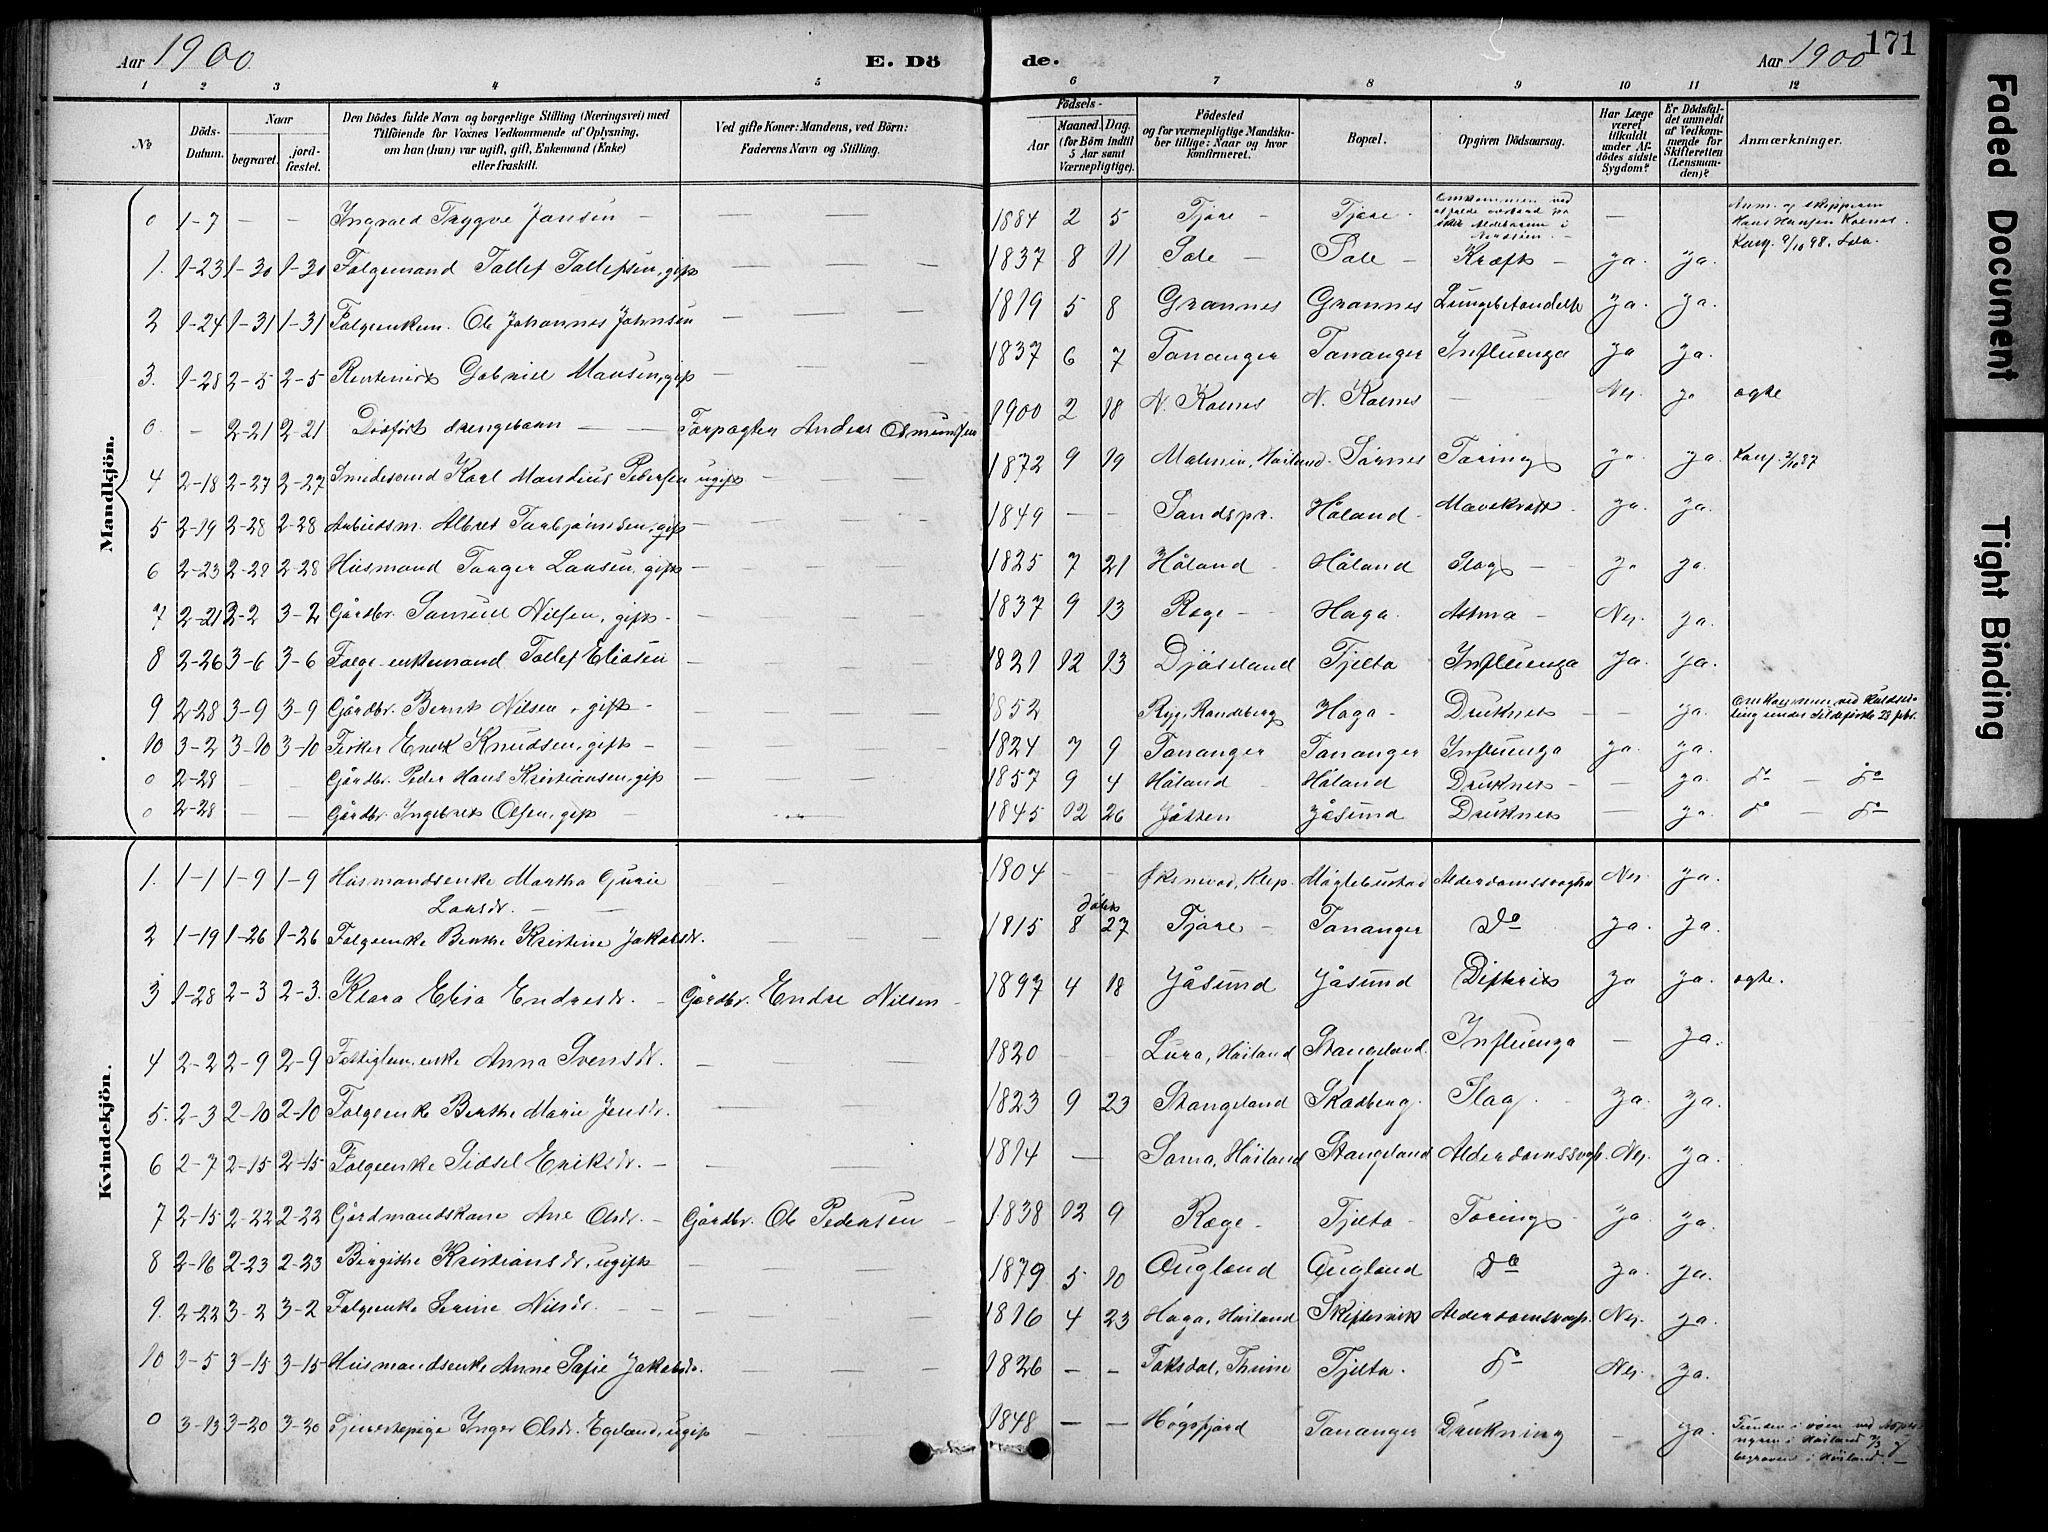 Aar 1900
E. Dö
de.
Aar 1900
171
1 2 3 4 5 6 7 8 9 10 11 12
No
Döds-
Datum.
Naar
begravet.
jord-
fæstet.
Den Dödes fulde Navn og borgerlige Stilling (Næringsvei) med
Tilföiende for Voxnes Vedkommende af Oplysning,
om han (hun) var ugift, gift, Enkemand (Enke)
eller fraskilt.
Ved gifte Koner: Mandens, ved Börn:
Faderens Navn og Stilling.
Födsels-
Aar
Maaned. Dag.
(for Börn indtil
5 Aar samt
Værnepligtige).
Födested
og for værnepligtige Mandska-
ber tillige: Naar og hvor
konfirmeret.
Bopæl.
Opgiven Dödsaarsag.
Har Læge
været
tilkaldt
under Af-
dödes sidste
Sygdom?
Er Dödsfal-
det anmeldt
af Vedkom-
mende for
Skifteretten
(Lensman-
den)?
Anmærkninger.
Mandkjön.
0 1-7 — — Ingvald Trygve Jansen — 1884 2 5 Tjore — Tjore. Omkommen ved Nordsöen. — Anm. af skipperen Hans Hansen Kolnes. Konf. 2/10 98. Sola.
1. 1-23 1-30 1-30 Folgemand Tollef Tollefsen, gift — 1837 8 11 Sole — Sole — Kræft — ja. ja.
2 1-24 1-31 1-31 Folgeenkem. Ole Johannes Johnsen — 1819 5 8 Grannes Grannes Lungebetændelse ja. ja.
3. 1-28 2-5 2-5 Rentenist Gabriel Monsen, gift — 1837 6 7 Tananger Tananger Influenza ja ja.
0. - 2-21 2-21 Dödfödt drengebarn — Forpagter Andreas Osmundsen 1900 2 18 N. Kolnes N. Kolnes — Nei. ja ogte
4 2-18 2-27 2-27 Smedesvend Karl Mandius Pedersen ugift — 1872 9 19 Malmin, Höiland. Sörnes Toring ja ja. Konf. 2/10 87
5 2-19 2-28 2-28 Arbeidsm. Albret Torbjörnsen, gift — 1849 — — Sandspr. Håland. Mavekræft. ja. ja.
6 2-23 2-28 2-28 Husmand Torger Larsen, gift — 1825 7 21 Håland Håland Slag — ja ja.
7 2-21 3-2 3-2 Gårdbr. Samuel Nilsen, gift. — 1837 9 13 Rege — Haga. Astma — Nei. ja.
8 2-26 3-6 3-6 Folge-enkemand Tollef Eliasen — 1821 12 13 Djöseland Tjelta Influenza ja. ja.
9 2-28 3-9 3-9 Gårdbr. Bernt Nilsen, gift — 1852 Ryg, Randeberg Haga. Druknet — ja. Omkommen ved Kuldsei-
ling under Sildefiske 28 febr.
10 3-2 3-10 3-10 Fisker Enok Knudsen, gift — 1824 7 9 Tananger Tananger Influenza ja. ja.
0 2-28 — — Gårdbr. Peder Hans Kristiansen, gift — 1857 9 4 Håland Håland Druknet — ja. do — do
0 2-28 — — Gårdbr. Ingebret Olsen, gift — 1845 12 26 Jåtten Jåsund Druknet — ja. do — do
Kvindekjön.
1. 1-1 1-9 1-9 Husmandsenke Martha Gurie
Larsdr. — 1804 — — Öksnevad, Klep. Mögletustad Alderdomssvaghed Nei. ja.
2 1-19 1-26 1-26 Folgeenke Berthe Kristine Jakobsdr. — 1815 8 döbt 27 Tjore — Tananger do ja. ja.
3 1-28 2-3 2-3. Klara Elisa Endresdr. — Gårdbr. Endre Nilsen — 1897 4 18 Jåsund Jåsund Difterit ja ja. ogte.
4 2-2 2-9 2-9 Fattiglem, enke Anna Svensdr. — 1820 — — Lura, Höiland Stangeland. Influenza — ja.
5. 2-3 2-10 2-10 Folgeenke Berthe Marie Jensdr. — 1823 9 23 Stangeland Skadberg. Slag. — ja. ja.
6 2-7 2-15 2-15 Folgeenke Sidsel Eriksdr. — 1814 — Soma, Höiland Stangeland Alderdomssvagh. Nei. ja.
7 2-15 2-22 2-22 Gårdmandskone Ane Olsdr. — Gårdbr. Ole Pedersen — 1838 12 9 Rege. Tjelta. Toring. ja ja.
8 2-16 2-23 2-23 Birgithe Kristiansdr. ugift — 1879 5 10 Ougland Ougland do ja. ja.
9. 2-22 3-2 3-2 Folgeenke Serine Nilsdr. — 1816 4 23 Haga, Höiland Skiftesvik Alderdomssvagh. Nei. ja.
10 3-5 3-15 3-15 Husmandsenke Anne Sofie Jakobsdr. — 1826 — — Taksdal, Thime Tjelta. do Nei. ja.
0 3-13 3-20 3-20 Tjenestepige Inger Olsdr. Egeland, ugift — 1848 — — Högsfjord Tananger Drukning — ja. Funden i söen ved
i Höiland 2/3
begraven i Höiland. —
Faded Document
Tight Binding